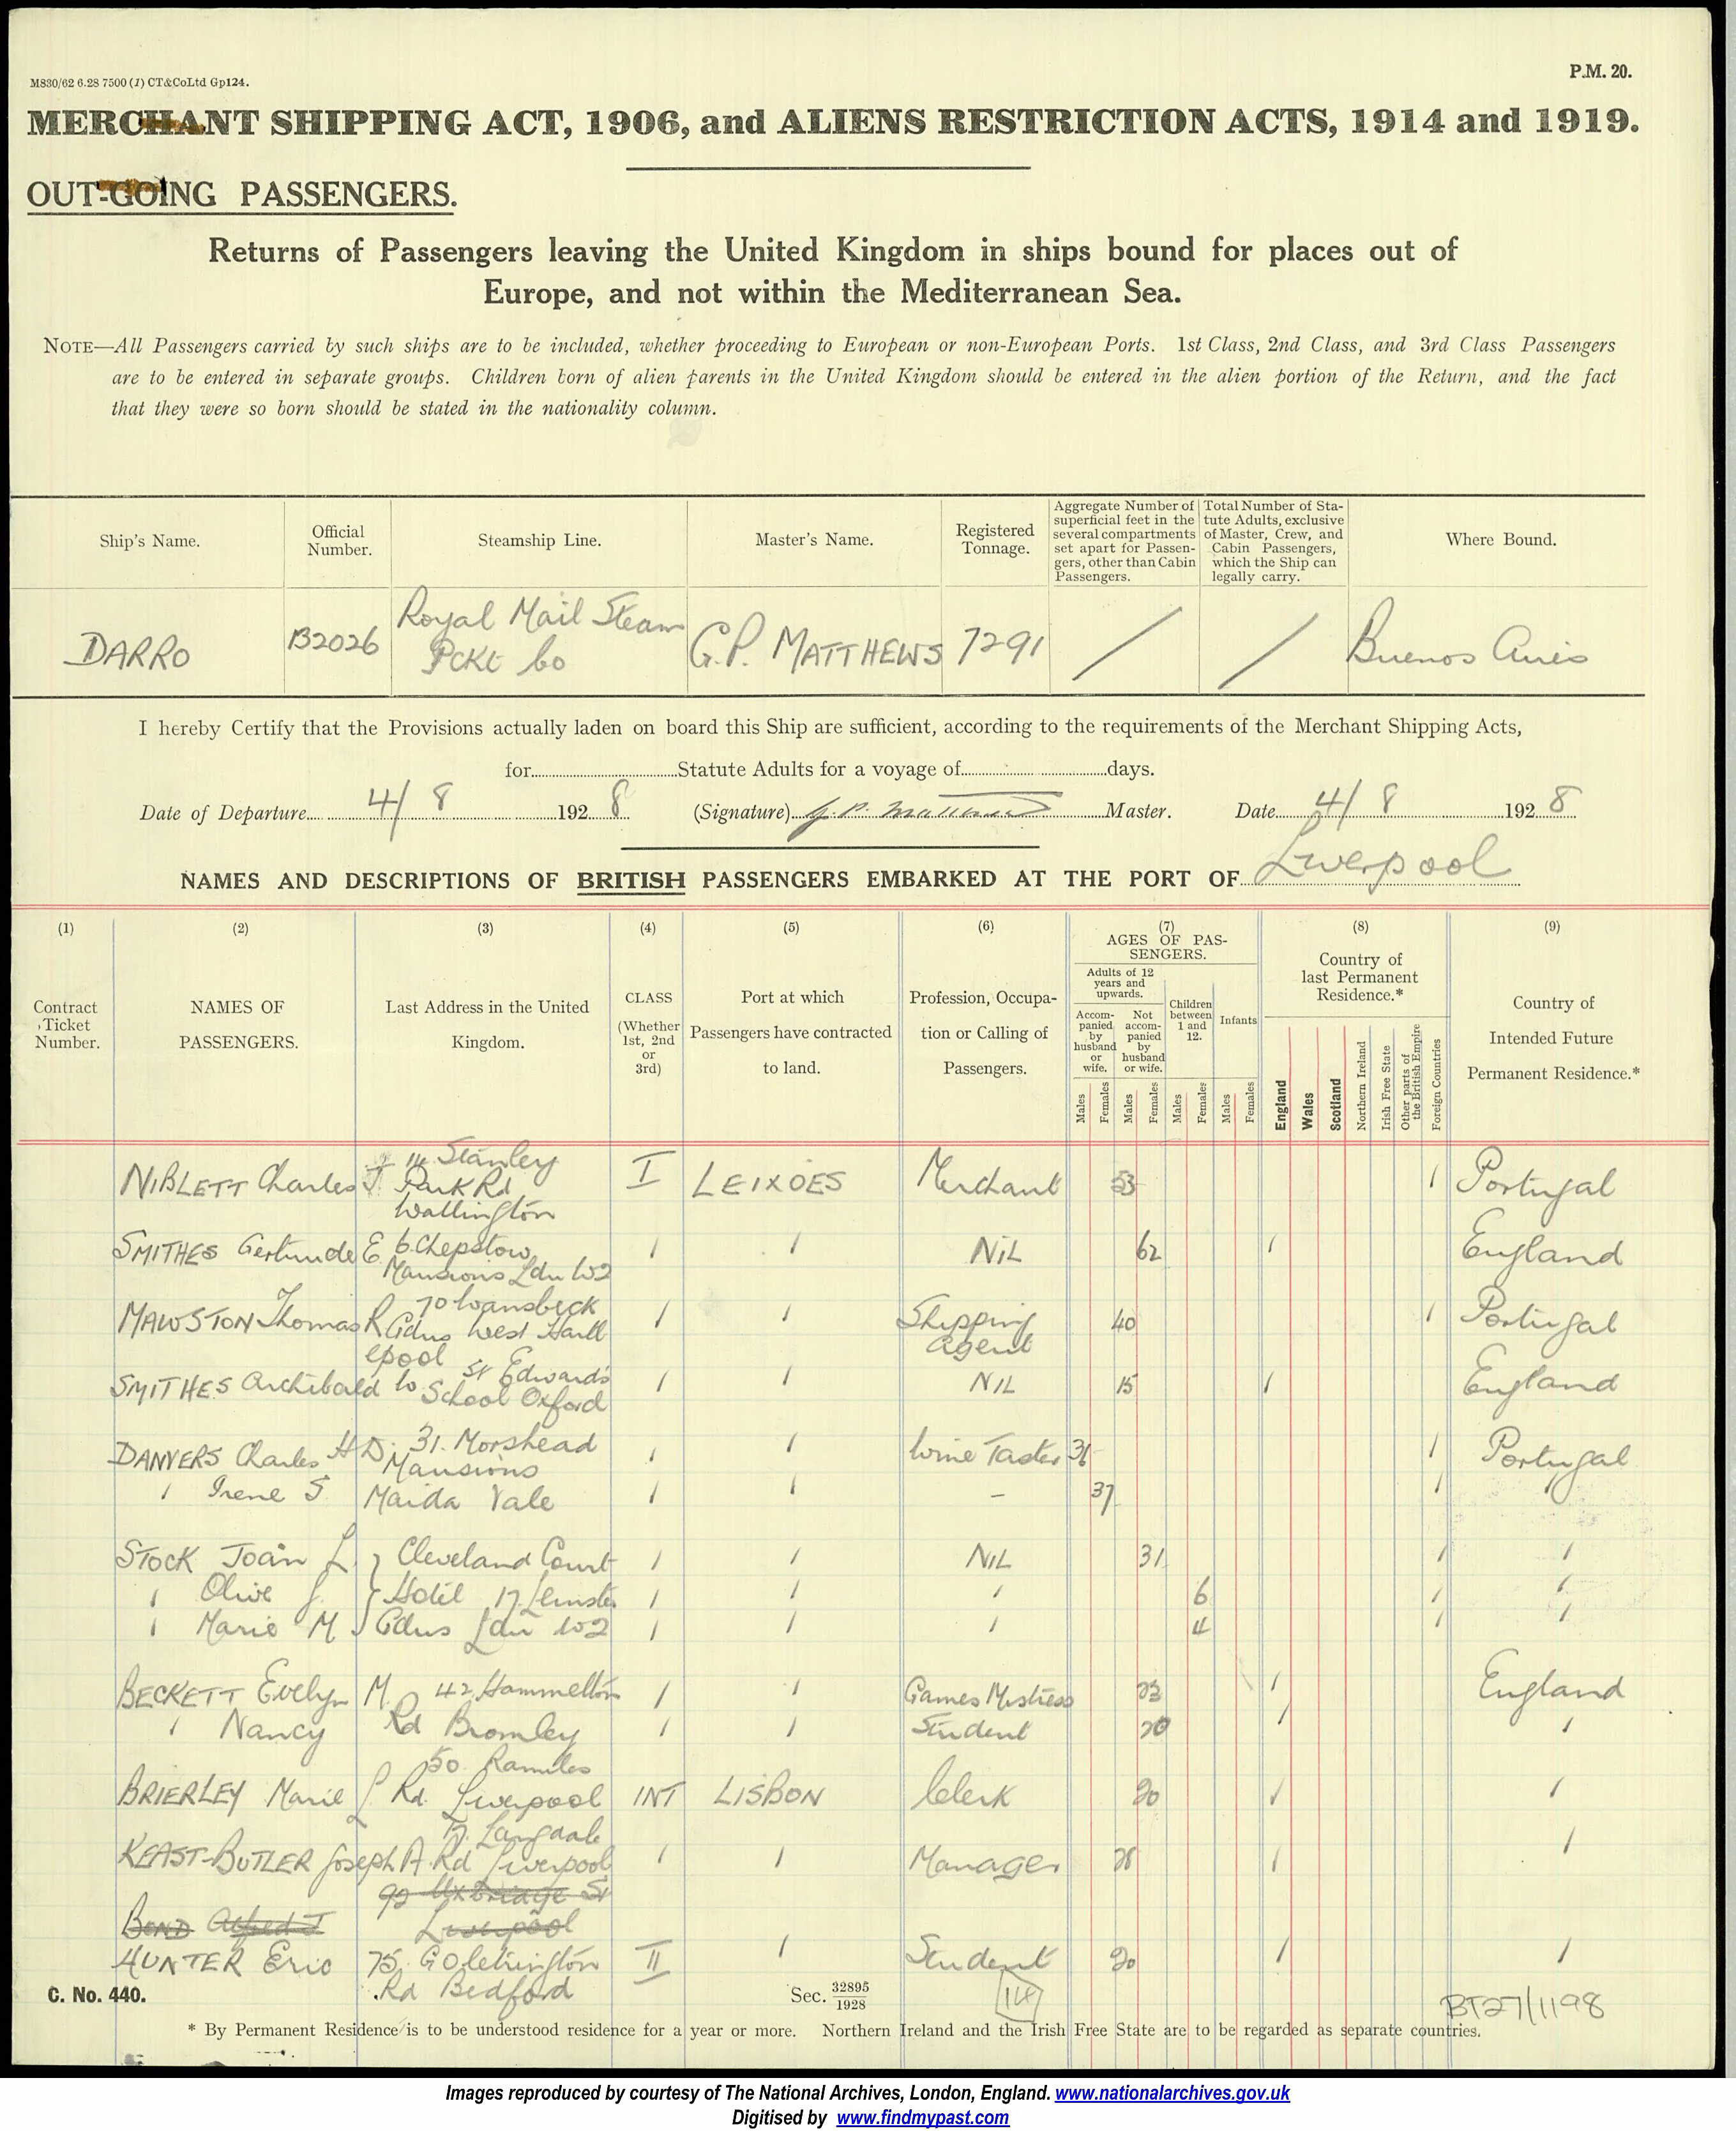 M830/62 6.28 7500 (1) CT&CoLtd Gp124.
P.M. 20.
MERCHANT SHIPPING ACT, 1906, and ALIENS RESTRICTION ACTS, 1914 and 1919.
OUT-GOING PASSENGERS.
Returns of Passengers leaving the United Kingdom in ships bound for places out of
Europe, and not within the Mediterranean Sea.
NOTE—All Passengers carried by such ships are to be included, whether proceeding to European or non-European Ports. 1st Class, 2nd Class, and 3rd Class Passengers
are to be entered in separate groups. Children born of alien parents in the United Kingdom should be entered in the alien portion of the Return, and the fact
that they were so born should be stated in the nationality column.
Ship's Name.
Official
Number.
Steamship Line.
Master's Name.
Registered
Tonnage.
Aggregate Number of
superficial feet in the
several compartments
set apart for Passen-
gers, other than Cabin
Passengers.
Total Number of Sta-
tute Adults, exclusive
of Master, Crew, and
Cabin Passengers,
which the Ship can
legally carry.
Where Bound.
DARRO
132026
Royal Mail Steam
Pckt Co
G.P. MATTHEWS
7291
/
/
Buenos Aires
I hereby Certify that the Provisions actually laden on board this Ship are sufficient, according to the requirements of the Merchant Shipping Acts,
for Statute Adults for a voyage of days.
Date of Departure 4/8 1928 (Signature) G.P. Matthews Master. Date 4/8 1928
NAMES AND DESCRIPTIONS OF BRITISH PASSENGERS EMBARKED AT THE PORT OF Liverpool
(1)
Contract
Ticket
Number.
(2)
NAMES OF
PASSENGERS.
(3)
Last Address in the United
Kingdom.
(4)
CLASS
(Whether
1st, 2nd
or
3rd)
(5)
Port at which
Passengers have contracted
to land.
(6)
Profession, Occupa-
tion or Calling of
Passengers.
(7)
AGES OF PAS-
SENGERS.
Adults of 12
years and
upwards.
Accom-
panied
by
husband
or
wife.
Not
accom-
panied
by
husband
or wife.
Children
between
1 and
12.
Infants
Males
Females
Males
Females
Males
Females
Males
Females
(8)
Country of
last Permanent
Residence.*
England
Wales
Scotland
Northern Ireland
Irish Free State
Other parts of
the British Empire
Foreign Countries
(9)
Country of
Intended Future
Permanent Residence.*
NIBLETT Charles J. 14 Stanley
Park Rd
Wallington
I LEIXOES Merchant 53 / Portugal
SMITHES Gertrude E 6 Chepstow
Mansions Ldn W2
/ / NIL 62 / England
MAWSTON Thomas R 70 Wansbeck
Gdns West Hartl
epool
/ / Shipping
Agent
40 / Portugal
SMITHES Archibald W St Edward's
School Oxford
/ / NIL 15 / England
DANVERS Charles H D. 31. Morshead
Mansions
/ / Wine Taster 36 / Portugal
/ Irene S Maida Vale / / – 37 / /
STOCK Joan L. Cleveland Court / / NIL 31 / /
/ Olive J. Hotel 17 Leinster / / / 6 / /
/ Marie M Gdns Ldn W2 / / / 4 / /
BECKETT Evelyn M. 42 Hammelton / / Games Mistress 23 / England
/ Nancy Rd Bromley / / Student 20 / /
BRIERLEY Marie L 50. Ramilies
Rd. Liverpool INT LISBON Clerk 20 / /
KEAST-BUTLER Joseph A. 17. Langdale
Rd Liverpool / / Manager 28 / /
BOND Alfred J 92 Uxbridge St
Liverpool
HUNTER Eric 75. Goldington
Rd Bedford
II / Student 20 / /
C. No. 440.
Sec. 32895
1928
14
BT27/1198
* By Permanent Residence is to be understood residence for a year or more. Northern Ireland and the Irish Free State are to be regarded as separate countries.
Images reproduced by courtesy of The National Archives, London, England. www.nationalarchives.gov.uk
Digitised by www.findmypast.com